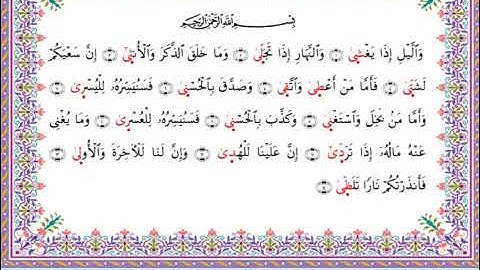 بِسْمِ اللَّهِ الرَّحْمَٰنِ الرَّحِيمِ
وَٱلَّيْلِ إِذَا يَغْشَىٰ ۝ وَٱلنَّهَارِ إِذَا تَجَلَّىٰ ۝ وَمَا خَلَقَ ٱلذَّكَرَ وَٱلْأُنثَىٰ ۝ إِنَّ سَعْيَكُمْ
لَشَتَّىٰ ۝ فَأَمَّا مَنْ أَعْطَىٰ وَٱتَّقَىٰ ۝ وَصَدَّقَ بِٱلْحُسْنَىٰ ۝ فَسَنُيَسِّرُهُۥ لِلْيُسْرَىٰ ۝
وَأَمَّا مَنۢ بَخِلَ وَٱسْتَغْنَىٰ ۝ وَكَذَّبَ بِٱلْحُسْنَىٰ ۝ فَسَنُيَسِّرُهُۥ لِلْعُسْرَىٰ ۝ وَمَا يُغْنِى
عَنْهُ مَالُهُۥٓ إِذَا تَرَدَّىٰٓ ۝ إِنَّ عَلَيْنَا لَلْهُدَىٰ ۝ وَإِنَّ لَنَا لَلْـَٔاخِرَةَ وَٱلْأُولَىٰ ۝
فَأَنذَرْتُكُمْ نَارًا تَلَظَّىٰ ۝